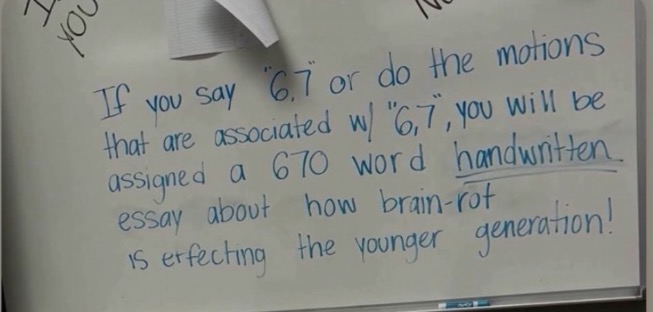 YOU
If you say "6,7" or do the motions
that are associated w/ "6,7", you will be
assigned a 670 word handwritten
essay about how brain-rot
is effecting the younger generation!